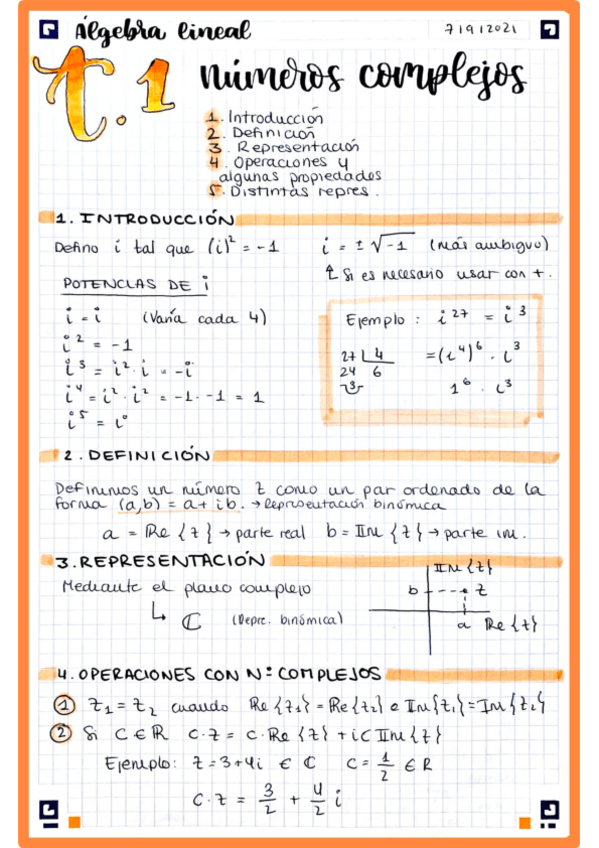 Álgebra lineal
7/9/2021
t.1 números complejos
1. Introducción
2. Definición
3. Representación
4. Operaciones y
algunas propiedades
5. Distintas repres.
1. INTRODUCCIÓN
Defino i tal que (i)² = -1
i = ± √-1 (más ambiguo)
↳ Si es necesario usar con +.
POTENCIAS DE i
i = i (Varía cada 4)
i² = -1
i³ = i² · i = -i
i⁴ = i² · i² = -1 · -1 = 1
i⁵ = i
Ejemplo: i²⁷ = i³
27 | 4
24 6
3
= (i⁴)⁶ · i³
1⁶ · i³
2. DEFINICIÓN
Definimos un número z como un par ordenado de la
forma (a,b) = a + ib. → Representación binómica
a = Re {z} → parte real b = Im {z} → parte im.
3. REPRESENTACIÓN
Mediante el plano complejo
↳ ℂ (Repre. binómica)
Im {z}
b z
a Re {z}
4. OPERACIONES CON Nº COMPLEJOS
① z₁ = z₂ cuando Re {z₁} = Re {z₂} e Im {z₁} = Im {z₂}
② Si C ∈ ℝ C·z = C·Re {z} + iC Im {z}
Ejemplo: z = 3+4i ∈ ℂ C = 1/2 ∈ ℝ
C·z = 3/2 + 4/2 i